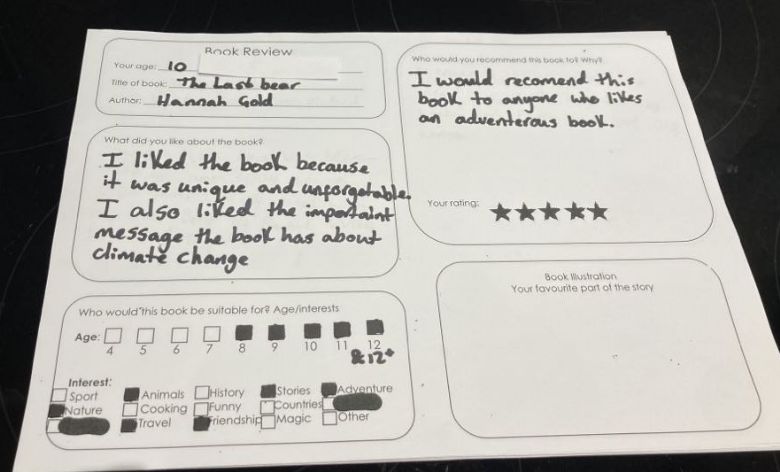 Book Review
Your age: 10
Title of book: The Last bear
Author: Hannah Gold
What did you like about the book?
I liked the book because
it was unique and unforgetable.
I also liked the importaint
message the book has about
climate change
Who would this book be suitable for? Age/interests
Age:
4 5 6 7 8 9 10 11 12
& 12+
Interest:
Sport Animals History Stories Adventure
Nature Cooking Funny Countries
Travel Friendship Magic Other
Who would you recommend this book to? Why?
I would recomend this
book to anyone who likes
an adventerous book.
Your rating: ★★★★★
Book Illustration
Your favourite part of the story